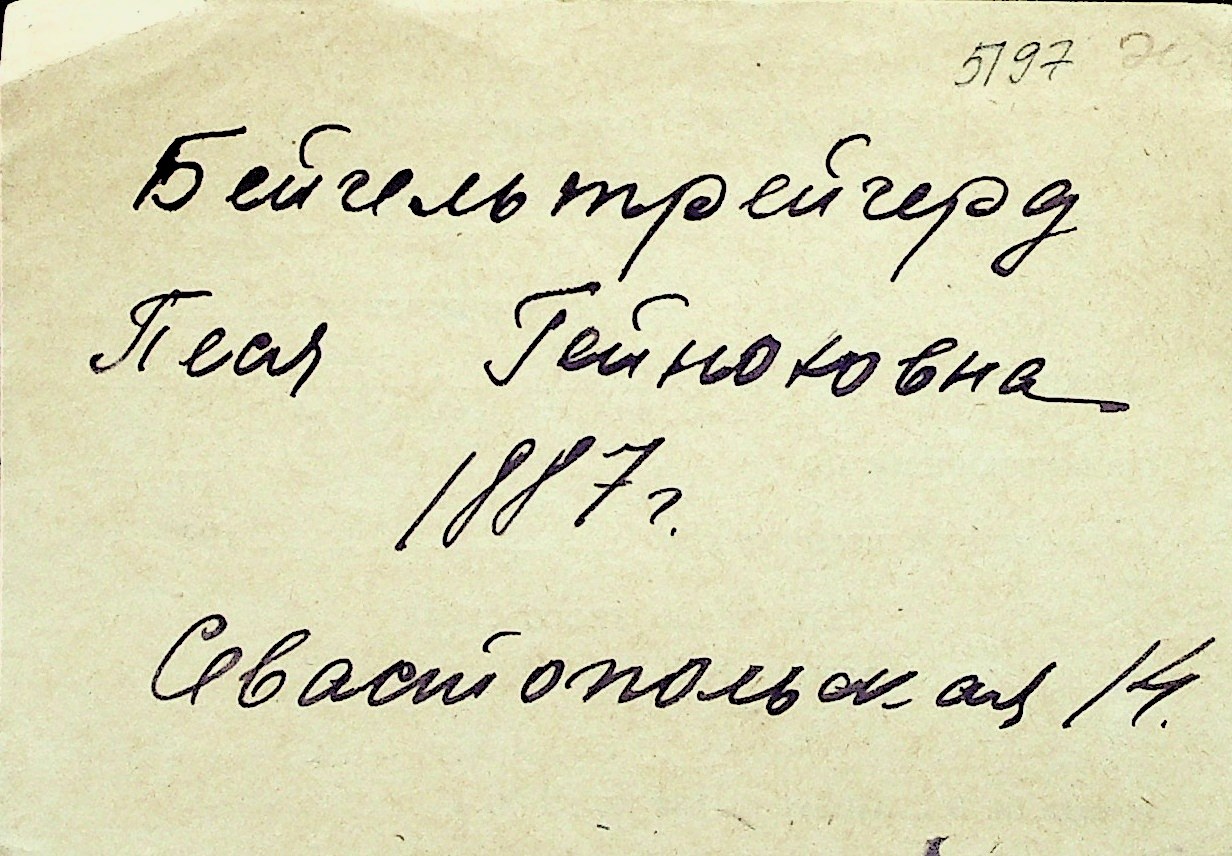 5197
Бейгельтрейгерд
Песя Гейноховна
1887 г.
Севастопольская 14.